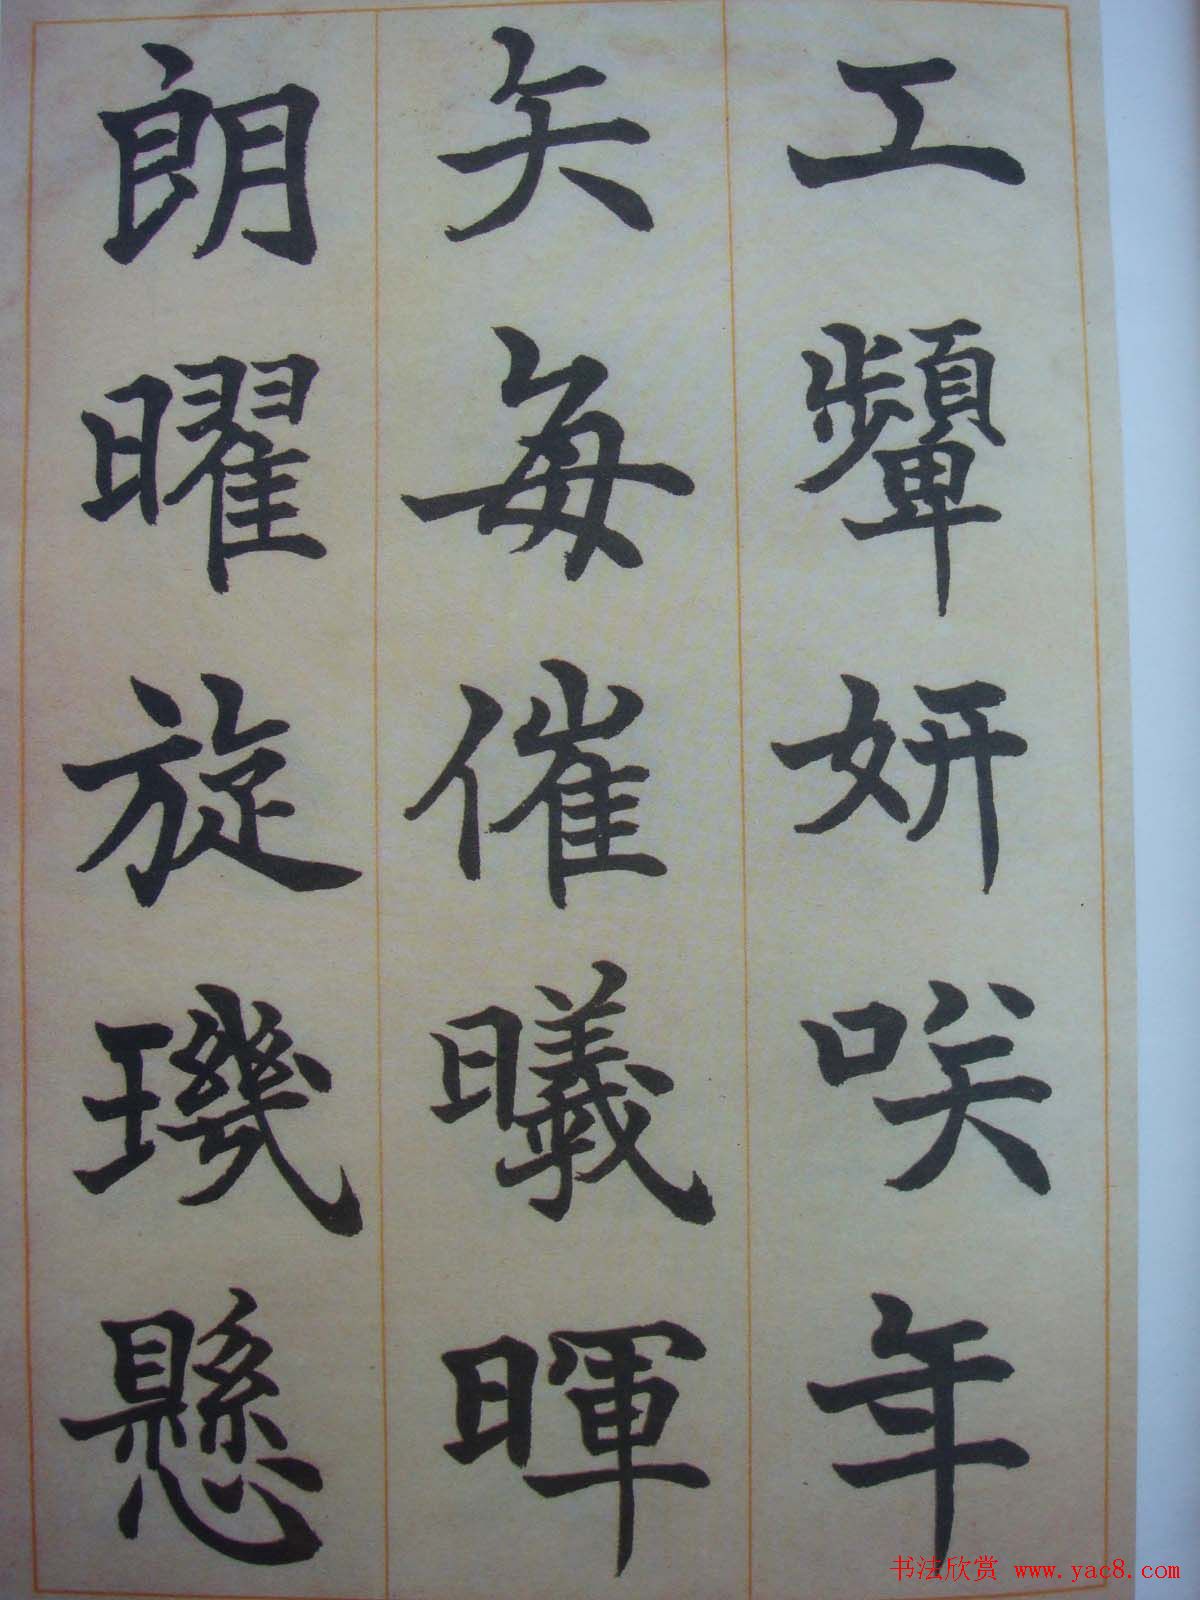 工顰妍咲年
矢每催曦暉
朗曜旋璣懸
书法欣赏 www.yac8.com